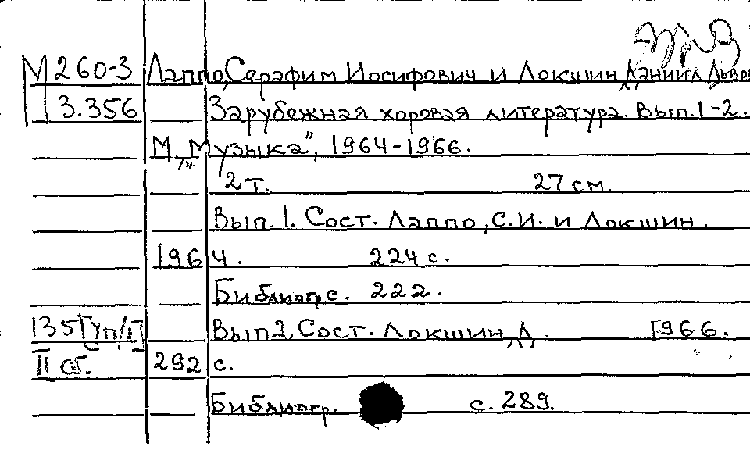 М260-3 Лаппо, Серафим Иосифович и Локшин, Даниил Львов
3.356 Зарубежная хоровая литература. Вып. 1-2.
М., „Музыка", 1964-1966.
2 т. 27 см.
Вып. 1. Сост. Лаппо, С.И. и Локшин.
1964. 224 с.
Библиогр. с. 222.
135 [уп/I] Вып 2. Сост. Локшин, Д. 1966.
II сг. 292 с.
Библиогр. с. 289.